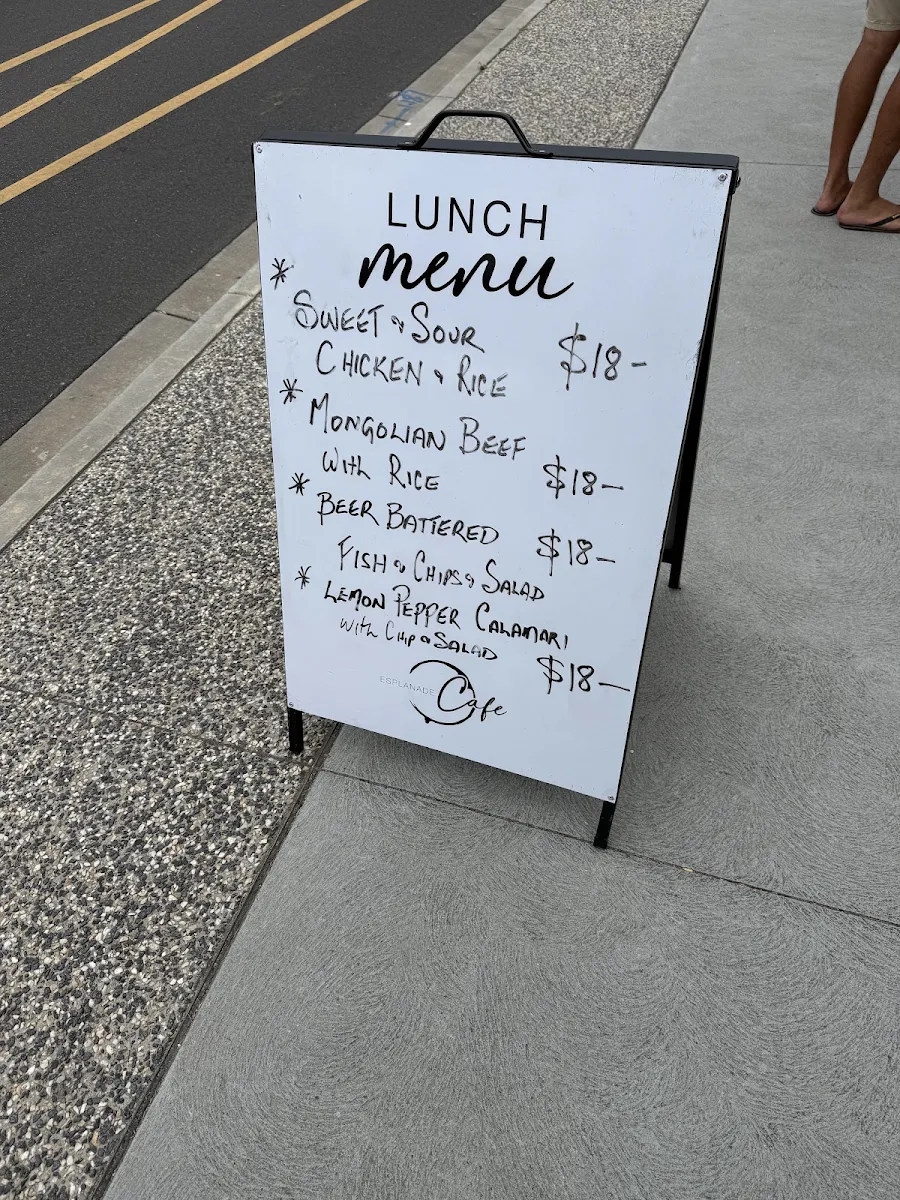 LUNCH
menu
* SWEET & SOUR
CHICKEN & RICE $18-
* MONGOLIAN BEEF
WITH RICE $18-
* BEER BATTERED $18-
FISH & CHIPS & SALAD
* LEMON PEPPER CALAMARI
WITH CHIP & SALAD $18-
ESPLANADE Cafe